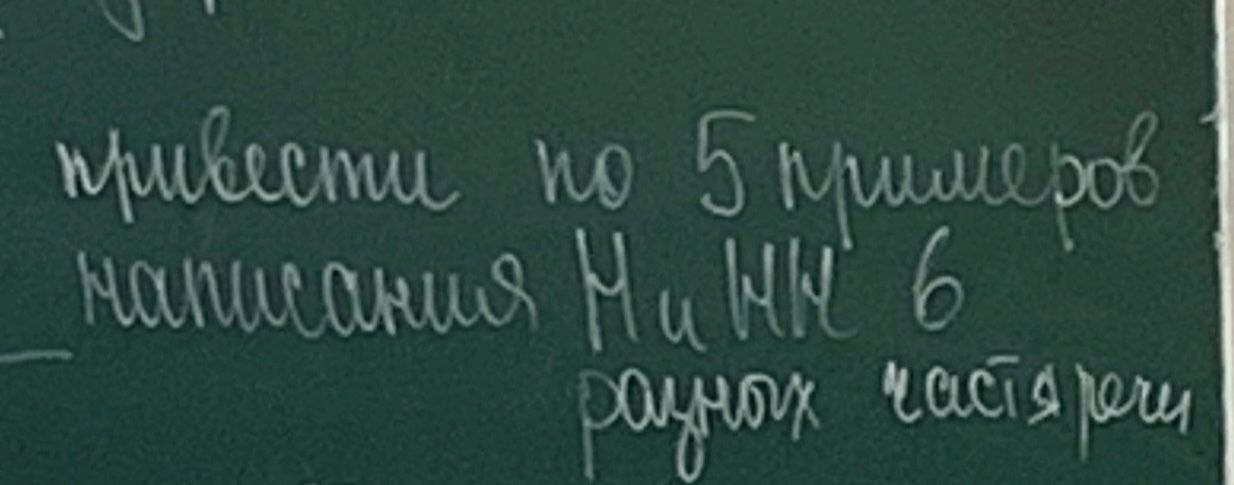 привести по 5 примеров
написания Н и НН в
разных частя речи